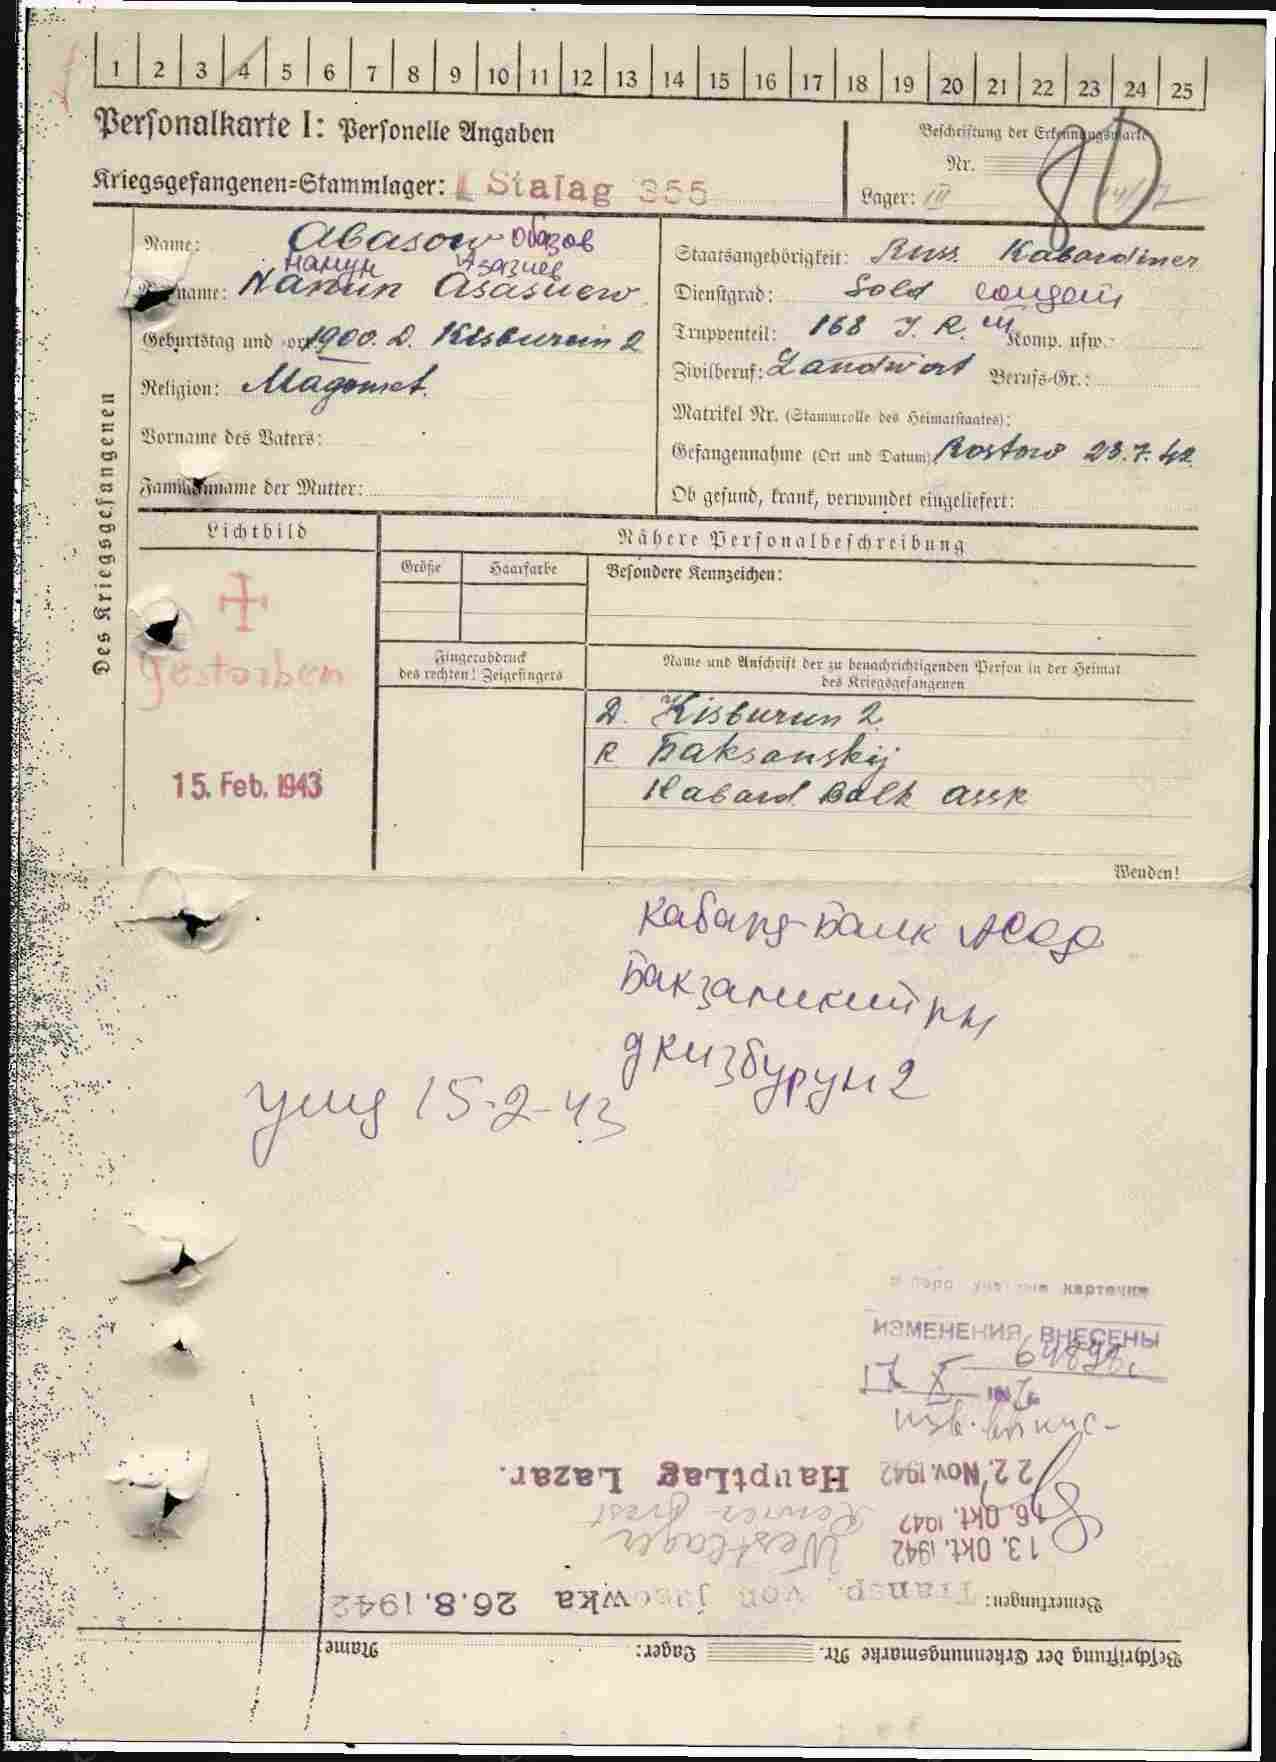 1 2 3 4 5 6 7 8 9 10 11 12 13 14 15 16 17 18 19 20 21 22 23 24 25
Personalkarte I: Personelle Angaben
Kriegsgefangenen=Stammlager: Stalag 355
Beschriftung der Erkennungsmarke
Nr.
Lager: III
Des Kriegsgefangenen
Name: Abasow Обазов
Намун Азазиев
Vorname: Namun Asasiew
Geburtstag und -ort 1900. D. Kisburun 2
Religion: Magomet.
Vorname des Vaters:
Familienname der Mutter:
Staatsangehörigkeit: Russ. Kabardiner
Dienstgrad: Sold солдат
Truppenteil: 168 J. R. Komp. usw.:
Zivilberuf: Landwirt Berufs-Gr.:
Matrikel Nr. (Stammrolle des Heimatstaates):
Gefangennahme (Ort und Datum) Rostow 23.7.42
Ob gesund, krank, verwundet eingeliefert:
Lichtbild
gestorben
15. Feb. 1943
Nähere Personalbeschreibung
Größe Haarfarbe Besondere Kennzeichen:
Fingerabdruck
des rechten! Zeigefingers
Name und Anschrift der zu benachrichtigenden Person in der Heimat
des Kriegsgefangenen
D. Kisburun 2
R Baksanskij
Kabard Balk assr
Wenden!
Кабард-Балк АССР
Бакзанский рн
д Кизбурун 2
15-2-43
карточка
ИЗМЕНЕНИЯ ВНЕСЕНЫ
22. Nov. 1942 HauptLag Lazar.
16. Okt. 1942
13. Okt. 1942 Westlager
Bemerkungen: Transp. von jasowka 26.8.1942
Beschriftung der Erkennungsmarke Nr. Lager: Name: